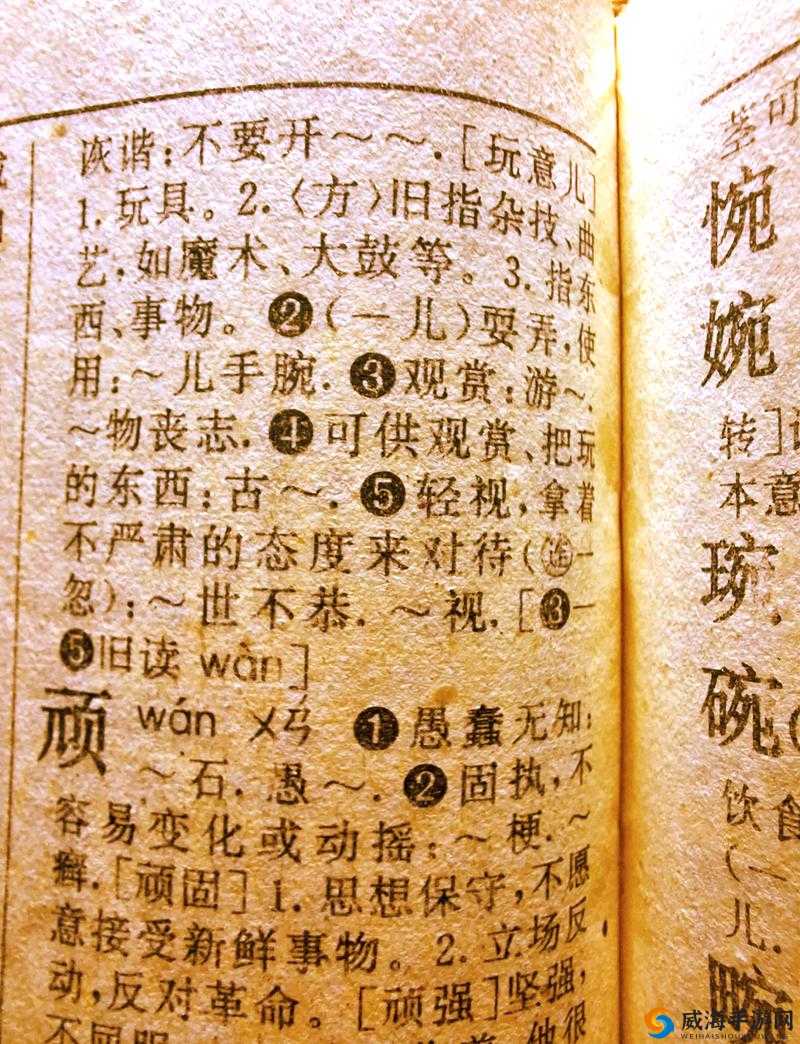 诙谐:不要开～～.[玩意儿]
1.玩具。2.〈方〉旧指杂技、曲
艺,如魔术、大鼓等。3.指东
西、事物。❷(一儿)耍弄,使
用:～儿手腕.❸观赏:游～.
～物丧志.❹可供观赏、把玩
的东西:古～.❺轻视,拿着
不严肃的态度来对待(㊣连一
忽):～世不恭.～视.[❸一
❺旧读 wàn]
顽 wán ㄨㄢˊ ❶愚蠢无知:
～石.愚～.❷固执,不
容易变化或动摇:～梗.～
癣.[顽固]1.思想保守,不愿
意接受新鲜事物。2.立场反
动,反对革命。[顽强]坚强,
不屈服 他很
茎可
惋
婉
转]
本意
琬
碗
饮食
(一
儿.
畹
威海手游网
WEIHAISHOUYOUWANG